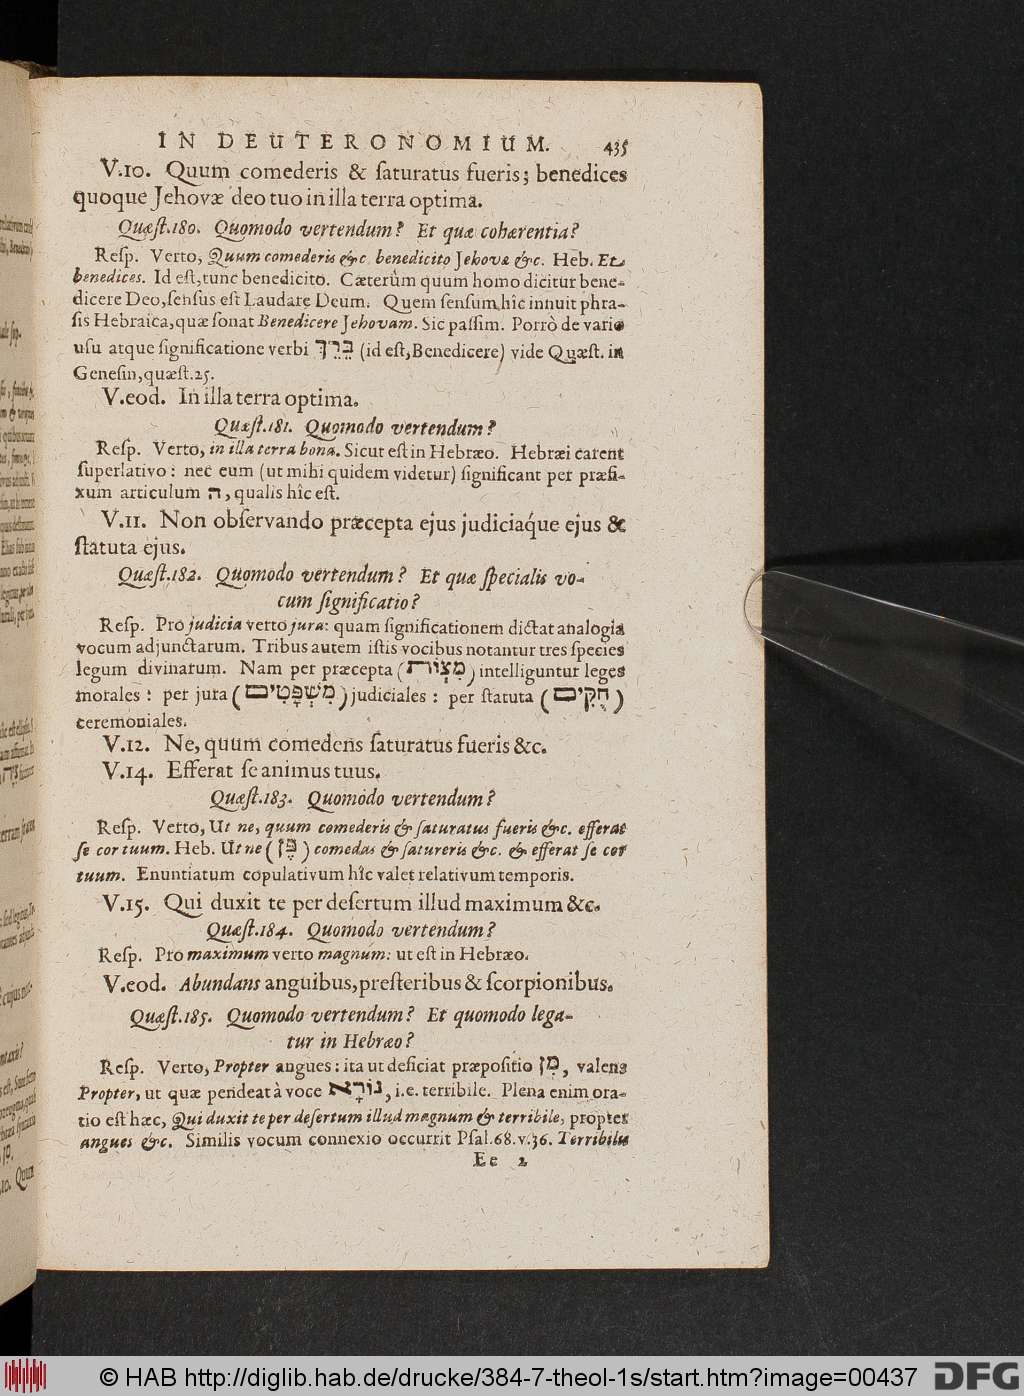 IN DEUTERONOMIUM. 435
V.10. Quum comederis & ſaturatus fueris; benedices
quoque Jehovæ deo tuo in illa terra optima.
Quæſt.180. Quomodo vertendum? Et quæ cohærentia?
Reſp. Verto, Quum comederis &c. benedicito Jehovæ &c. Heb. Et
benedices. Id eſt, tunc benedicito. Cæterùm quum homo dicitur bene-
dicere Deo, ſenſus eſt Laudare Deum. Quem ſenſum hîc innuit phra-
ſis Hebraica, quæ ſonat Benedicere Jehovam. Sic paſſim. Porrò de vario
uſu atque ſignificatione verbi בֵּרֵךְ (id eſt, Benedicere) vide Quæſt. in
Geneſin, quæſt.25.
V.eod. In illa terra optima.
Quæſt.181. Quomodo vertendum?
Reſp. Verto, in illa terra bona. Sicut eſt in Hebræo. Hebræi carent
ſuperlativo: nec eum (ut mihi quidem videtur) ſignificant per præfi-
xum articulum ה, qualis hîc eſt.
V.11. Non obſervando præcepta ejus judiciaq́ue ejus &
ſtatuta ejus.
Quæſt.182. Quomodo vertendum? Et quæ ſpecialis vo-
cum ſignificatio?
Reſp. Pro judicia verto jura: quam ſignificationem dictat analogia
vocum adjunctarum. Tribus autem iſtis vocibus notantur tres ſpecies
legum divinarum. Nam per præcepta (מִצְוֹת) intelliguntur leges
morales: per jura (מִשְׁפָּטִים) judiciales: per ſtatuta (חֻקִּים)
ceremoniales.
V.12. Ne, quum comedens ſaturatus fueris &c.
V.14. Efferat ſe animus tuus.
Quæſt.183. Quomodo vertendum?
Reſp. Verto, Ut ne, quum comederis & ſaturatus fueris &c. efferat
ſe cor tuum. Heb. Ut ne (פֶּן) comedas & ſatureris &c. & efferat ſe cor
tuum. Enuntiatum copulativum hîc valet relativum temporis.
V.15. Qui duxit te per deſertum illud maximum &c.
Quæſt.184. Quomodo vertendum?
Reſp. Pro maximum verto magnum: ut eſt in Hebræo.
V.eod. Abundans anguibus, preſteribus & ſcorpionibus.
Quæſt.185. Quomodo vertendum? Et quomodo lega-
tur in Hebræo?
Reſp. Verto, Propter angues: ita ut deficiat præpoſitio מִן, valens
Propter, ut quæ pendeat à voce נוֹרָא, i.e. terribile. Plena enim ora-
tio eſt hæc, Qui duxit te per deſertum illud magnum & terribile, propter
angues &c. Similis vocum connexio occurrit Pſal.68.v.36. Terribilis
Ee 2
© HAB http://diglib.hab.de/drucke/384-7-theol-1s/start.htm?image=00437
DFG